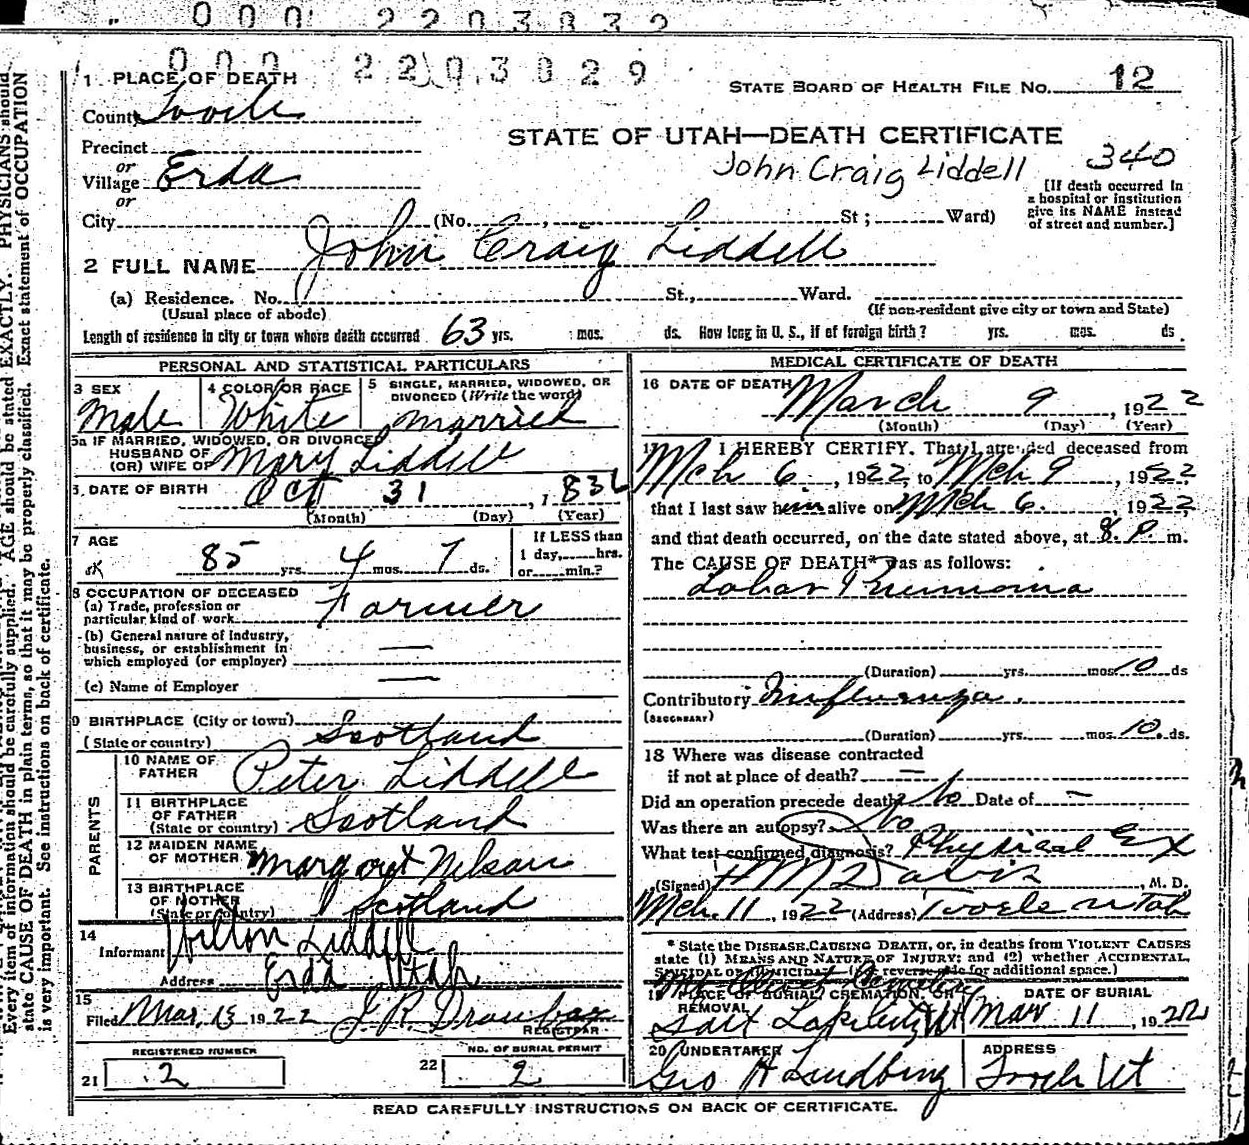 000 2203832
000 2203829
1 PLACE OF DEATH
STATE BOARD OF HEALTH FILE NO. 12
County Tooele
STATE OF UTAH—DEATH CERTIFICATE
Precinct
or
Village Erda
John Craig Liddell 340
or
City (No. St; Ward)
[If death occurred in
a hospital or institution
give its NAME instead
of street and number.]
2 FULL NAME John Craig Liddell
(a) Residence. No. St., Ward.
(Usual place of abode)
(If non-resident give city or town and State)
Length of residence in city or town where death occurred 63 yrs. mos. ds. How long in U. S., if of foreign birth? yrs. mos. ds.
PERSONAL AND STATISTICAL PARTICULARS
3 SEX
Male
4 COLOR OR RACE
White
5 SINGLE, MARRIED, WIDOWED, OR
DIVORCED (Write the word)
married
5a IF MARRIED, WIDOWED, OR DIVORCED
HUSBAND OF
(OR) WIFE OF Mary Liddell
DATE OF BIRTH Oct 31, 183
(Month) (Day) (Year)
7 AGE
85 yrs. 4 mos. 7 ds.
If LESS than
1 day, hrs.
or min.?
8 OCCUPATION OF DECEASED
(a) Trade, profession or
particular kind of work Farmer
(b) General nature of industry,
business, or establishment in
which employed (or employer) —
(c) Name of Employer —
9 BIRTHPLACE (City or town)
(State or country) Scotland
PARENTS
10 NAME OF
FATHER Peter Liddell
11 BIRTHPLACE
OF FATHER
(State or country) Scotland
12 MAIDEN NAME
OF MOTHER Margaret Nelson
13 BIRTHPLACE
OF MOTHER
(State or country) Scotland
14
Informant Hilton Liddell
Address Erda Utah
15
Filed Mar. 15 1922 J R
REGISTRAR
REGISTERED NUMBER
21 2
NO. OF BURIAL PERMIT
22 2
MEDICAL CERTIFICATE OF DEATH
16 DATE OF DEATH
March 9, 1922
(Month) (Day) (Year)
17 I HEREBY CERTIFY. That I attended deceased from
Mch 6, 1922, to Mch 9, 1922
that I last saw him alive on Mch 6. 1922,
and that death occurred, on the date stated above, at 8. P. m.
The CAUSE OF DEATH* was as follows:
Lobar Pneumonia
(Duration) yrs. mos 10 ds
Contributory Influenza.
(SECONDARY)
(Duration) yrs. mos 10. ds.
18 Where was disease contracted
if not at place of death? —
Did an operation precede death? No Date of —
Was there an autopsy? No
What test confirmed diagnosis? Physical Ex
(Signed) H M Davis, M. D.
Mch. 11, 1922 (Address) Tooele Utah
* State the DISEASE CAUSING DEATH, or, in deaths from VIOLENT CAUSES
state (1) MEANS AND NATURE OF INJURY; and (2) whether ACCIDENTAL,
SUICIDAL OR HOMICIDAL. (See reverse side for additional space.)
Mt Olivet Cemetery
19 PLACE OF BURIAL, CREMATION, OR
REMOVAL
Salt Lake City Ut
DATE OF BURIAL
Mar 11, 1922
20 UNDERTAKER
Geo H Lindberg
ADDRESS
Tooele Ut
READ CAREFULLY INSTRUCTIONS ON BACK OF CERTIFICATE.
Every item of information should be carefully supplied. AGE should be stated EXACTLY. PHYSICIANS should
state CAUSE OF DEATH in plain terms, so that it may be properly classified. Exact statement of OCCUPATION
is very important. See instructions on back of certificate.